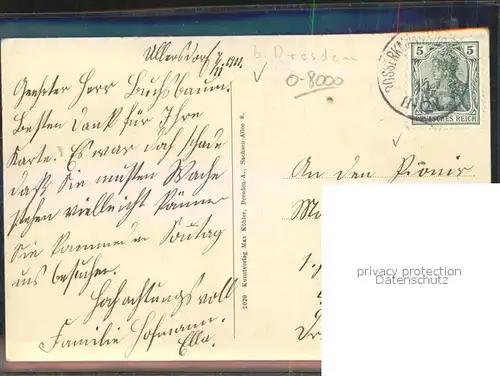 Ullersdorf 7/VII 1911.
b. Dresden
0-8000
Geehrter Herr Buchsbaum.
Besten Dank für Ihre
Karte. Es war doch schade
daß Sie mußten Wache
stehen vielleicht können
Sie kommenden Sontag
uns besuchen.
Hochachtungsvoll
Familie Hofmann.
Ella.
1020 Kunstverlag Max Köhler, Dresden-A., Sachsen-Allee 8.
5 5
DEUTSCHES REICH
An den Pionir
privacy protection
Datenschutz